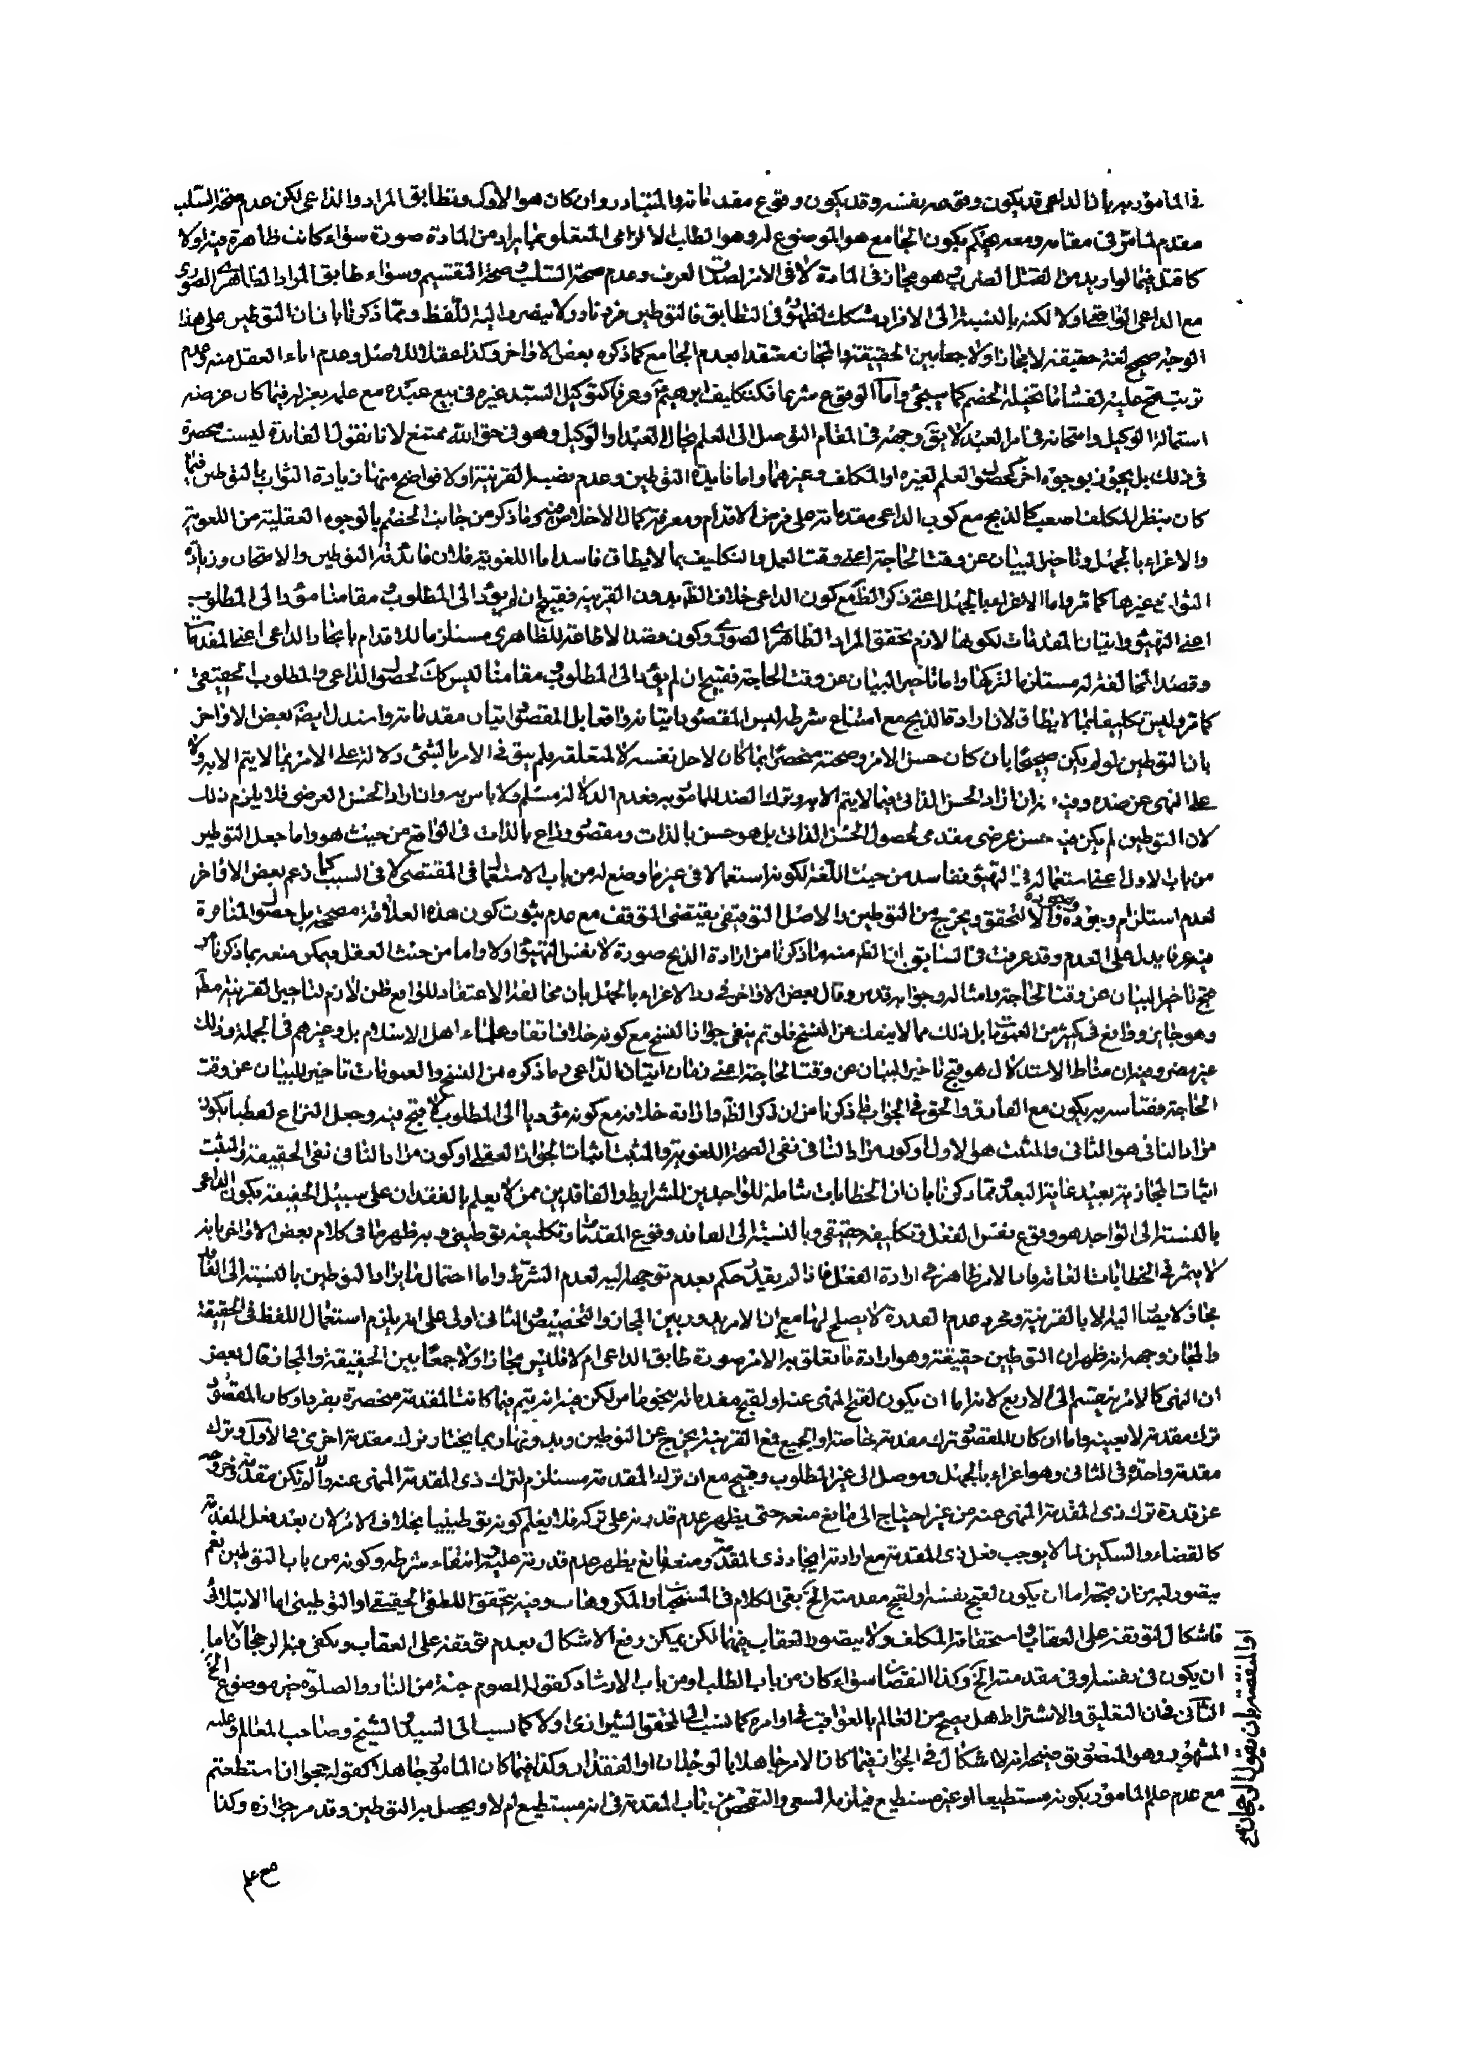 في المأمور به بان الداعى قد يكون وقوعه بنفسه وقد يكون وقوع مقدماته والمتبادر وان كان هو الاول وتطابق المراد والداعى لكن عدم صحة السلب
مقدم لما مر فى مقامه ومعه يحكم بكون الجامع هو الموضوع له وهو الطلب الالزامى المتعلق بما يراد من المادة صورة سواء كانت ظاهرة فيه اولا
كالقتل فيما لو اريد من القتل الضرب هو مجاز فى المادة لا فى الامر لصدق العرف وعدم صحة السلب وصحة التقسيم وسواء طابق المراد الظاهرى الصورى
مع الداعى الواقعى اولا لكنه بالنسبة الى الافراد مشكك لظهوره فى التطابق فالتوطين فرد نادر ولا ينصرف اليه اللفظ ومما ذكرنا بان ان التوطين على هذا
الوجه صحيح لغة حقيقة لا مجازا ولا جمعا بين الحقيقة والمجاز معتقدا بعدم الجامع كما ذكره بعض الاواخر وكذا عقلا للاصل وعدم اباء العقل منه وعدم
ترتب قبح عليه لفساد ما تخيله الخصم كما سيجئ واما الوقوع شرعا فكتكليف ابرهيم وعرفا كتوكيل السيد غيره فى بيع عبده مع علمه بعزله فيما كان غرضه
استمالة الوكيل وامتحانه فى امر العبد لا يقال وجهه فى المقام التوصل الى العلم بحال العبد او الوكيل وهو فى حق الله ممتنع لانا نقول الفائدة ليست منحصرة
فى ذلك بل يجوز بوجوه اخر كحصول العلم لغيره او المكلف وغيرهما واما فايدة التوطين وعدم نصب القرينة اولا فواضح منها زيادة الثواب بالتوطين فيما
كان بنظر المكلف اصعب كالذبح مع كون الداعى مقدماته على فرض الاقدام ومعرفة كمال الاخلاص منه وما ذكر من جانب الخصم بالوجوه العقلية من اللغوية
والاغراء بالجهل وتاخير البيان عن وقت الحاجة اعنى وقت العمل والتكليف بما لا يطاق فاسد اما اللغوية فلان فائدته التوطين والامتحان وزيادة
الثواب وغيرها كما مر واما الاغراء بالجهل اعنى ذكر الظ مع كون الداعى خلاف الظ بدون القرينة فقبيح ان لم يؤد الى المطلوب ومقامنا مؤد الى المطلوب
اعنى التهيؤ واتيان المقدمات لكونها لازم تحقق المراد الظاهرى الصورى وكون قصد الاطاعة للظاهرى مستلزما للاقدام بايجاد الداعى اعنى المقدمات
وقصد المخالفة له مستلزما لتركها واما تاخير البيان عن وقت الحاجة فقبيح ان لم يؤد الى المطلوب ومقامنا ليس كك لحصول الداعى والمطلوب الحقيقى
كما مر وليس تكليفا بما لا يطاق لان ارادة الذبح مع امتناع شرطه ليس المقصود اتيانه واقعا بل المقصود اتيان مقدماته واستدل ايض بعض الاواخر
بان التوطين لو لم يكن صحيحا بان كان حسن الامر وصحته منحصرا بما كان لاجل نفسه لا لمتعلقه فلم يبق فى الامر بالشئ دلالة على الامر بما لا يتم الا به ولا
على النهى عن ضده وفيه انه ان اراد الحسن الذاتى فيما لا يتم الا به وترك الضد للمأمور به فعدم الدلالة مسلم ولا باس به وان اراد الحسن العرضى فلا يلزم ذلك
لان التوطين لم يكن فيه حسن عرضى مقدمى لحصول الحسن الذاتى بل هو حسن بالذات ومقصود وداع بالذات فى الواقع من حيث هو واما جعل التوطين
من باب الاول اعنى استعماله فى التهيؤ ففاسد من حيث اللغة لكونه استعمالا فى غير ما وضع له من باب الاستعمال فى المقتضى لا فى السبب كما زعم بعض الاواخر
لعدم استلزام وجوده وجوده والا لتحقق ويخرج من التوطين والاصل التوقيفى يقتضى التوقف مع عدم ثبوت كون هذه العلاقة مصححة بل حصول المنافرة
فيه عرفا يدل على العدم وقد عرفت فى السابق ان الظ منه ما ذكرنا من ارادة الذبح صورة لا نفس التهيؤ اولا واما من حيث العقل فيمكن منعه بما ذكرنا من
قبح تاخير البيان عن وقت الحاجة وامثاله وجوابه قد مر وقال بعض الاواخر فى رد الاغراء بالجهل بان مخالفة الاعتقاد للواقع ظن لازم لتاخير القرينة مطلقا
وهو جايز وواقع فى كثير من العمومات بل ذلك مما لا ينفك عن النسخ فلو تم ينفى جواز النسخ مع كونه خلاف اتفاق علماء اهل الاسلام بل وغيرهم فى الجملة وذلك
غير مضر وفيه ان مناط الاستدلال هو قبح تاخير البيان عن وقت الحاجة اعنى زمان اتيان الداعى وما ذكره من النسخ والعمومات تاخير للبيان عن وقت
الحاجة فقياسه به يكون مع الفارق والحق فى الجواب ما ذكرنا من ان ذكر الظ وارادة خلافه مع كونه مؤديا الى المطلوب لا قبح فيه وجعل النزاع لفظيا بكون
مراد النافى هو الثانى والمثبت هو الاول او كون مراد النافى نفى الصحة اللغوية والمثبت اثبات الجواز العقلى او كون مراد النافى نفى الحقيقة والمثبت
اثبات المجازية بعيد غاية البعد ومما ذكرنا بان ان الخطابات شاملة للواجدين للشرايط والفاقدين ممن لا يعلم بالفقدان على سبيل الحقيقة بكون الداعى
بالنسبة الى الواجد هو وقوع نفس الفعل وتكليفه حقيقى وبالنسبة الى الفاقد وقوع المقدمات وتكليفه توطينى وبه ظهر ما فى كلام بعض الاواخر بانه
لا يثمر فى الخطابات العامة فان الامر ظاهر فى ارادة الفعل فاذا لم يقيد حكم بعدم توجهه اليه لعدم الشرط واما احتمال ارادة التوطين بالنسبة الى الفاقد
مجاز لا يصار اليه الا بالقرينة ومجرد عدم القدرة لا يصلح لها مع ان الامر يدور بين المجاز والتخصيص والثانى اولى على انه يلزم استعمال اللفظ فى الحقيقة
والمجاز وجهه انه ظهر ان التوطين حقيقة وهو ارادة ما تعلق به الامر صورة طابق الداعى ام لا فليس مجازا ولا جمعا بين الحقيقة والمجاز قال بعض
ان النهى كالامر ينقسم الى الاربع لانه اما ان يكون لقبح المنهى عنه او لقبح مقدماته بنحو ما مر لكن فيه انه يتم فيما كانت المقدمة منحصرة بفرد او كان المقصود
ترك مقدمة لا بعينه واما ان كان المقصود ترك مقدمة خاصة او الجميع فمع القرينة يخرج عن التوطين وبدونها ربما يختار ترك مقدمة اخرى فى الاول وترك
مقدمة واحدة فى الثانى وهو اغراء بالجهل وموصل الى غير المطلوب وقبيح مع ان ترك المقدمة مستلزم لترك ذى المقدمة المنهى عنه والا لم تكن مقدمة فخروجه
عن قدرة ترك ذى المقدمة المنهى عنه من غير احتياج الى مانع منعه حتى يظهر عدم قدرته على تركه فلا يعلم كونه توطينيا بخلاف الامر لان بعد فعل المقدمة
كالقضاء والسكين لما لا يوجب فعل ذى المقدمة مع ارادة ايجاد ذى المقدمة ومنعه مانع يظهر عدم قدرته عليه وانتفاء شرطه وكونه من باب التوطين نعم
يتصور له زمان قبحه اما ان يكون لقبح نفسه او لقبح مقدمته الخ بقى الكلام فى المستحبات والمكروهات وفيه يتحقق اللطفى الحقيقى او التوطينى اما الابتلائى
فاشكال لتوقفه على العقاب واستحقاقه المكلف ولا يتصور العقاب فيهما لكن يمكن رفع الاشكال بعدم توقفه على العقاب ويكفى فيه الرجحان اما
ان يكون فى نفسه او فى مقدمته الخ وكذا النقصان سواء كان من باب الطلب او من باب الارشاد كقوله الصوم جنة من النار والصلوة خير موضوع الخ
الثانى فى ان التعليق والاشتراط هل يصح من العالم بالعواقب فى اوامره كما نسب الى المحقق الشيرازى اولا كما نسب الى السيد والشيخ وصاحب المعالم وعليه
المشهور وهو المنصور توضيحه انه لا اشكال فى الجواز فيما كان الامر جاهلا بالوجدان او الفقدان وكذا فيما كان المأمور جاهلا كقوله حجوا ان استطعتم
مع عدم علم المأمور بكونه مستطيعا او غير مستطيع فيلزمه السعى والتفحص من باب المقدمة فى انه مستطيع ام لا ويحصل به التوطين وقد مر جوازه وكذا
او المنقصة بان يقول الرجحان
مع علم